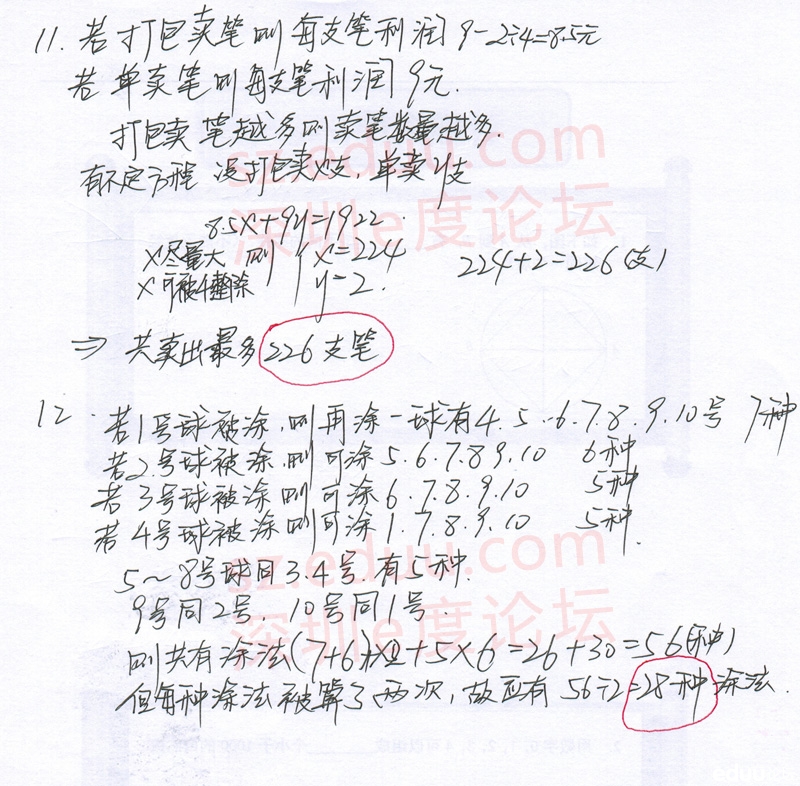 11. 若打包卖笔则每支笔利润9-2÷4=8.5元
若单卖笔则每支笔利润9元.
打包卖笔越多则卖笔数量越多.
有不定方程 设打包卖x支,单卖y支
8.5x+9y=1922.
x尽量大 则 { x=224
x可被4整除 y=2.
224+2=226(支)
⇒ 共卖出最多226支笔
12. 若1号球被涂,则再涂一球有4.5.6.7.8.9.10号 7种
若2号球被涂,则可涂5.6.7.8.9.10 6种
若3号球被涂,则可涂6.7.8.9.10 5种
若4号球被涂则可涂1.7.8.9.10 5种.
5～8号球同3.4号.有5种.
9号同2号. 10号同1号.
则共有涂法(7+6)×2+5×6=26+30=56(种)
但每种涂法被算了两次,故应有56÷2=28种涂法.
sz.eduu.com
深圳e度论坛
sz.eduu.com
深圳e度论坛